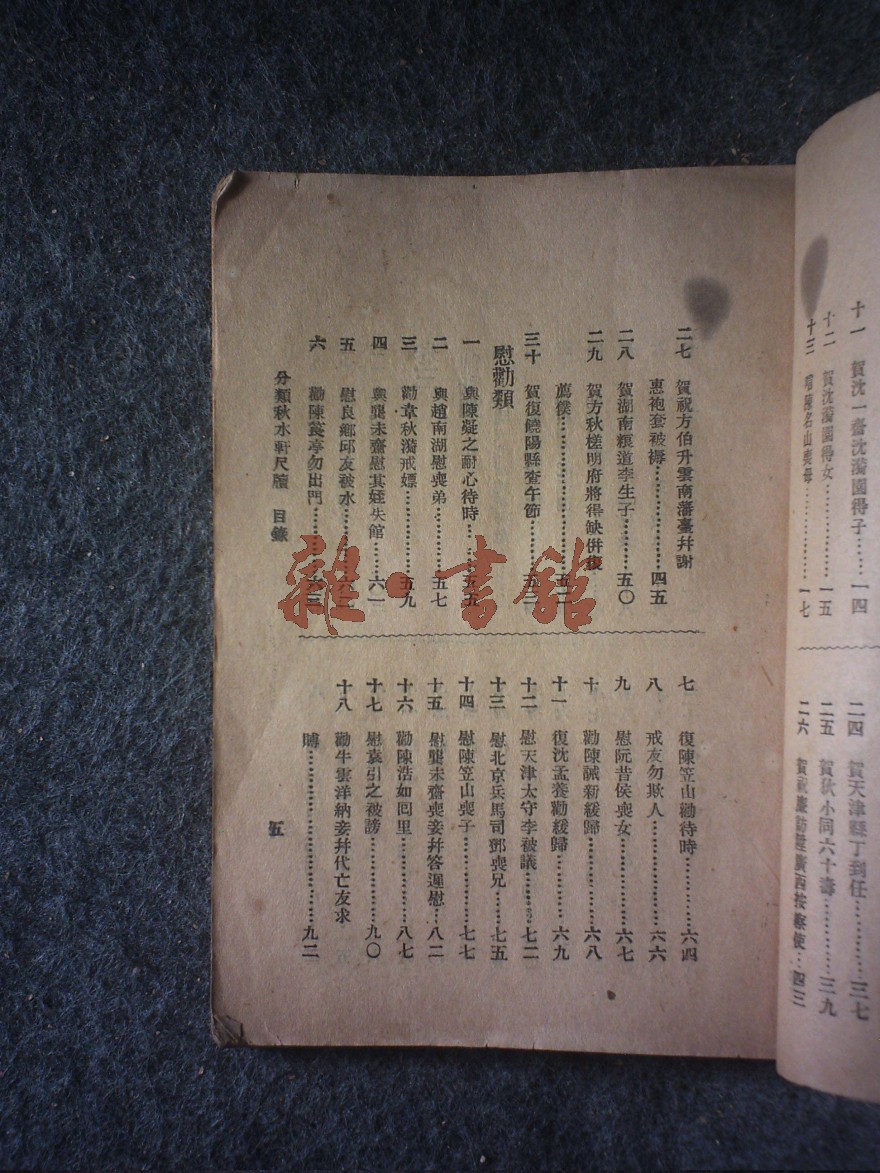 十一 賀沈一齋沈漪園得子……一四
十二 賀沈漪園得女…………一五
十三 唁陳名山喪母…………一七
二四 賀天津縣丁到任…………三七
二五 賀秋小同六十壽…………三九
二六 賀祝 廣西按察使…四三
二七 賀祝方伯升雲南藩臺幷謝
惠袍套被褥…………四五
二八 賀湖南糧道李生子………五〇
二九 賀方秋槎明府將得缺併復
薦僕…………五二
三十 賀復饒陽縣查午節………五三
慰勸類
一 與陳凝之耐心待時………五五
二 與趙南湖慰喪弟………五七
三 勸章秋漪戒嫖…………五九
四 與龔未齋慰其姪失館……六一
五 慰良鄉邱友被水………六二
六 勸陳蓂亭勿出門………六三
七 復陳笠山勸待時…………六四
八 戒友勿欺人…………六六
九 慰阮昔侯喪女…………六七
十 勸陳誠新緩歸…………六八
十一 復沈孟養勸緩歸………六九
十二 慰天津太守李被議………七二
十三 慰北京兵馬司鄧喪兄……七五
十四 慰陳笠山喪子…………七七
十五 慰龔未齋喪妾幷答遲慰…八二
十六 勸陳浩如囘里…………八七
十七 慰袁引之被謗…………九〇
十八 勸牛雲洋納妾幷代亡友求
賻…………九二
分類秋水軒尺牘 目錄
五
雜·書館